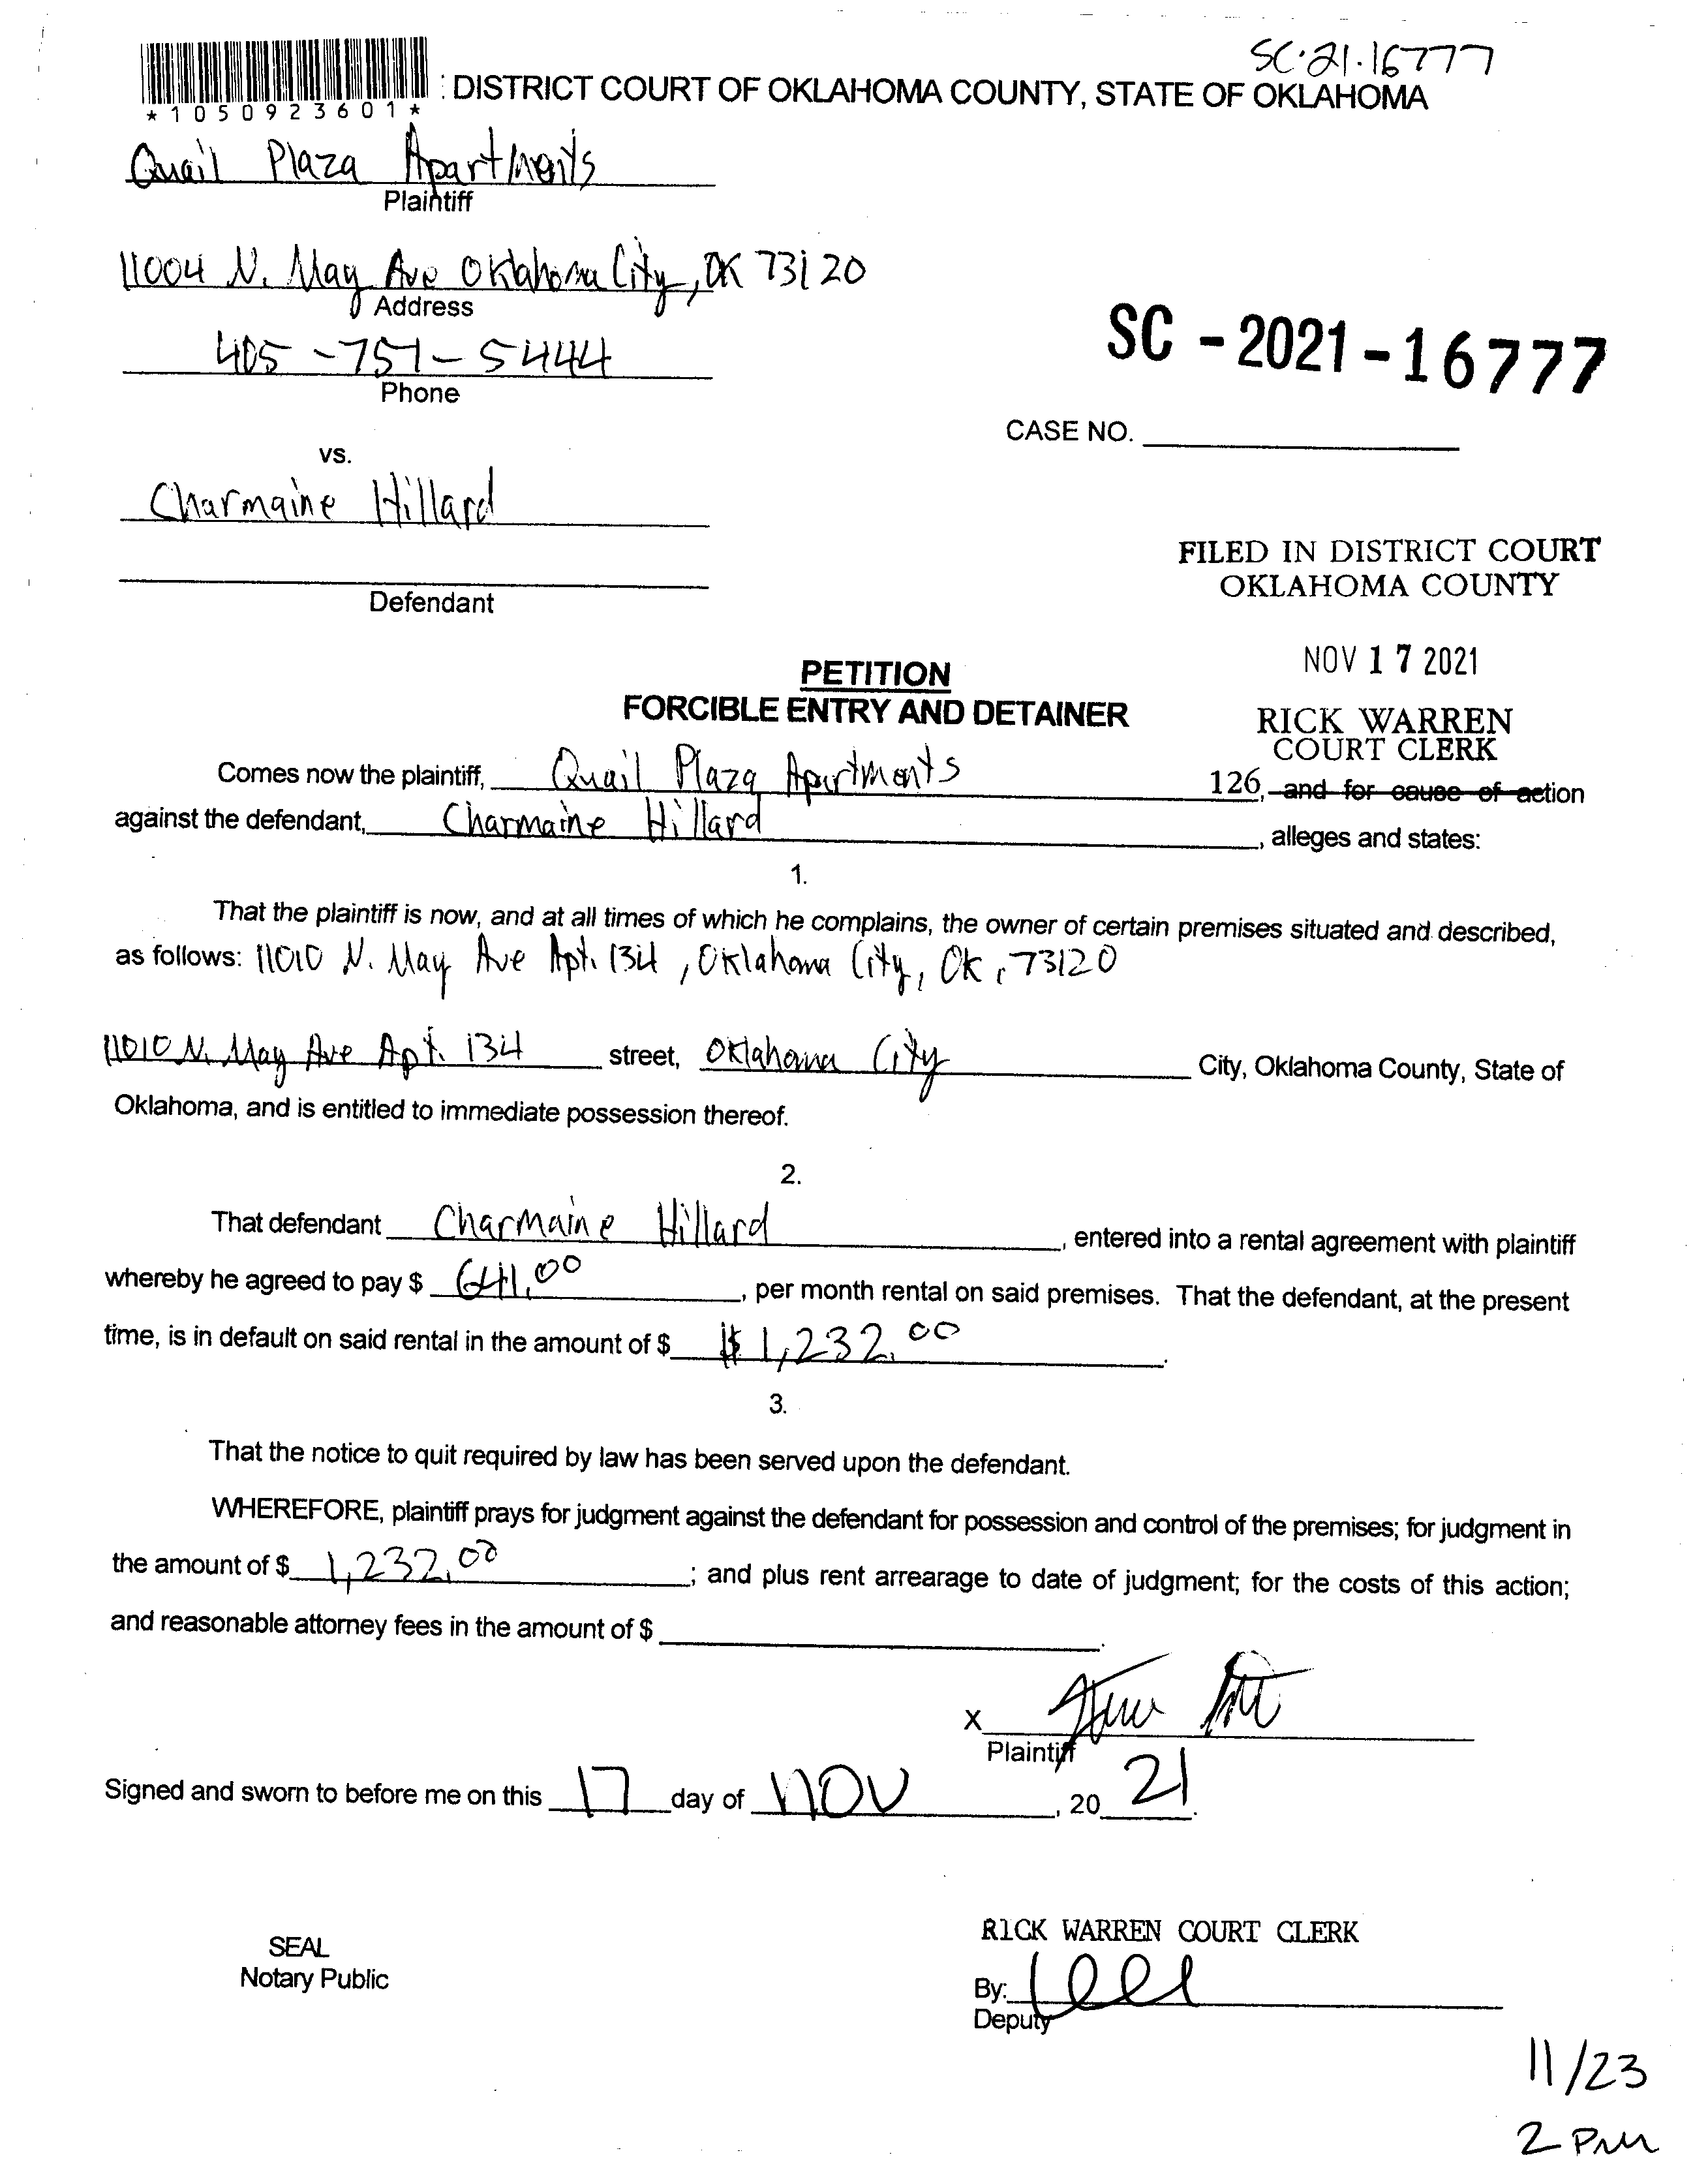 SC·21·16777
: DISTRICT COURT OF OKLAHOMA COUNTY, STATE OF OKLAHOMA
*1050923601*
Quail Plaza Apartments
Plaintiff
11004 N. May Ave Oklahoma City, OK 73120
Address
405-751-5444
Phone
SC - 2021 - 16777
CASE NO.
vs.
Charmaine Hillard
Defendant
FILED IN DISTRICT COURT
OKLAHOMA COUNTY
NOV 17 2021
RICK WARREN
COURT CLERK
126
PETITION
FORCIBLE ENTRY AND DETAINER
Comes now the plaintiff, Quail Plaza Apartments, and for cause of action
against the defendant, Charmaine Hillard, alleges and states:
1.
That the plaintiff is now, and at all times of which he complains, the owner of certain premises situated and described,
as follows: 11010 N. May Ave Apt. 134, Oklahoma City, Ok, 73120
11010 N. May Ave Apt. 134 street, Oklahoma City City, Oklahoma County, State of
Oklahoma, and is entitled to immediate possession thereof.
2.
That defendant Charmaine Hillard, entered into a rental agreement with plaintiff
whereby he agreed to pay $ 641.00, per month rental on said premises. That the defendant, at the present
time, is in default on said rental in the amount of $ $1,232.00.
3.
That the notice to quit required by law has been served upon the defendant.
WHEREFORE, plaintiff prays for judgment against the defendant for possession and control of the premises; for judgment in
the amount of $ 1,232.00; and plus rent arrearage to date of judgment; for the costs of this action;
and reasonable attorney fees in the amount of $ .
X
Plaintiff
Signed and sworn to before me on this 17 day of NOV, 20 21.
SEAL
Notary Public
RICK WARREN COURT CLERK
By:
Deputy
11/23
2 PM